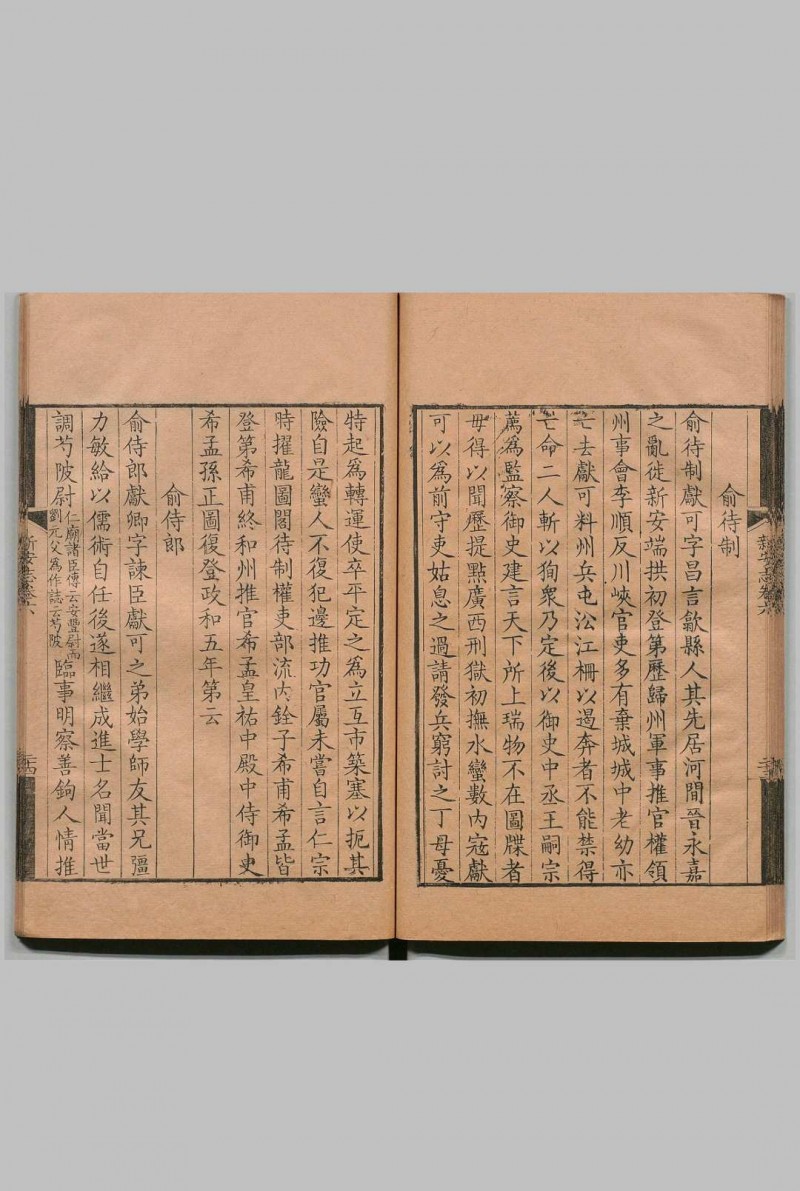 俞待制
俞待制獻可字昌言歙縣人其先居河間晉永嘉
之亂徙新安端拱初登第歷歸州軍事推官權領
州事會李順反川峽官吏多有棄城城中老幼亦
亡去獻可料州兵屯沿江柵以遏奔者不能禁得
亡命二人斬以狥衆乃定後以御史中丞王嗣宗
薦為監察御史建言天下所上瑞物不在圖牒者
毋得以聞歷提點廣西刑獄初撫水蠻數內寇獻
可以為前守吏姑息之過請發兵窮討之丁母憂
特起為轉運使卒平定之為立互市築塞以扼其
險自是蠻人不復犯邊推功官屬未嘗自言仁宗
時擢龍圖閣待制權吏部流內銓子希甫希孟皆
登第希甫終和州推官希孟皇祐中殿中侍御史
希孟孫正圖復登政和五年第云
俞侍郎
俞侍郎獻卿字諫臣獻可之弟始學師友其兄彊
力敏給以儒術自任後遂相繼成進士名聞當世
調芍陂尉仁廟諸臣傳云安豐尉而劉元父為作誌云芍陂臨事明察善鉤人情推
新安志卷六